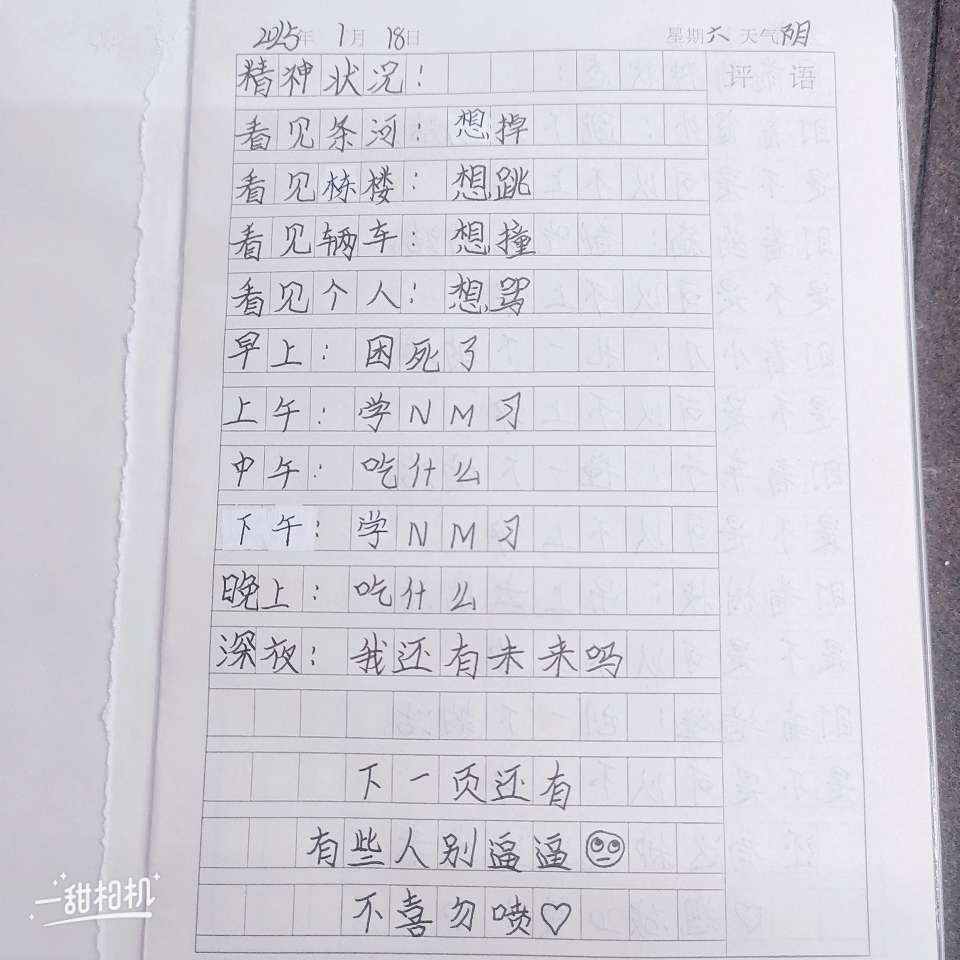 2025年 1月 18日 星期六 天气阴
精神状况： 评语
看见条河：想掉
看见栋楼：想跳
看见辆车：想撞
看见个人：想骂
早上：困死了
上午：学NM习
中午：吃什么
下午：学NM习
晚上：吃什么
深夜：我还有未来吗
下一页还有
有些人别逼逼🙄
不喜勿喷♡
一甜相机